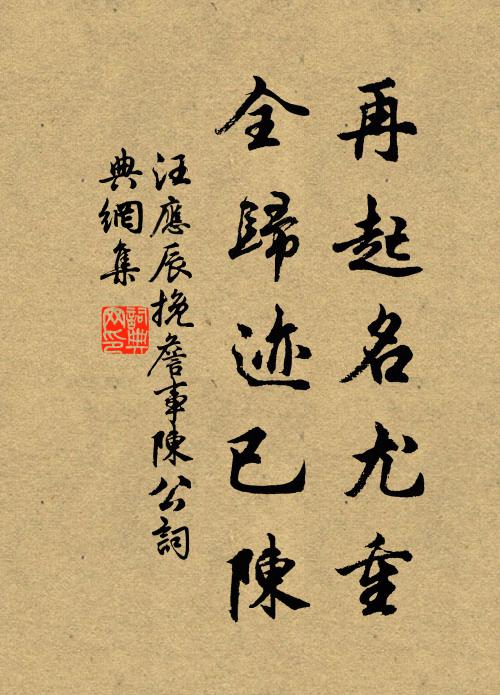 再起名尤重
全歸迹已陳
汪應辰挽詹事陳公詞
典網集
詞典網印